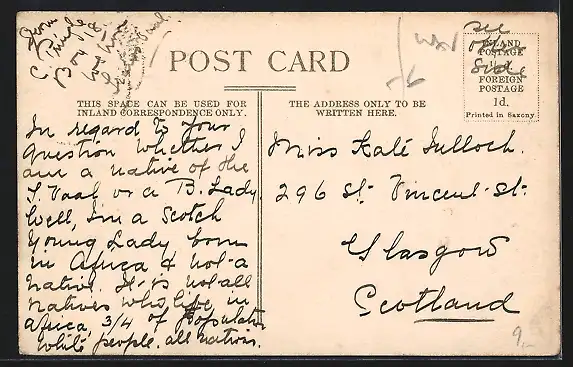 From
C
Box
see
other
side
POST CARD
INLAND
POSTAGE
½d.
FOREIGN
POSTAGE
1d.
Printed in Saxony
THIS SPACE CAN BE USED FOR
INLAND CORRESPONDENCE ONLY.
THE ADDRESS ONLY TO BE
WRITTEN HERE.
In regard to your
question whether I
am a native of the
T. Vaal or a B. Lady.
Well, I'm a Scotch
Young Lady born
in Africa & not a
native. It is not all
natives who live in
Africa, 3/4 of population
white people. all nations.
Miss Kate Tulloch.
296 St. Vincent St.
Glasgow
Scotland
9